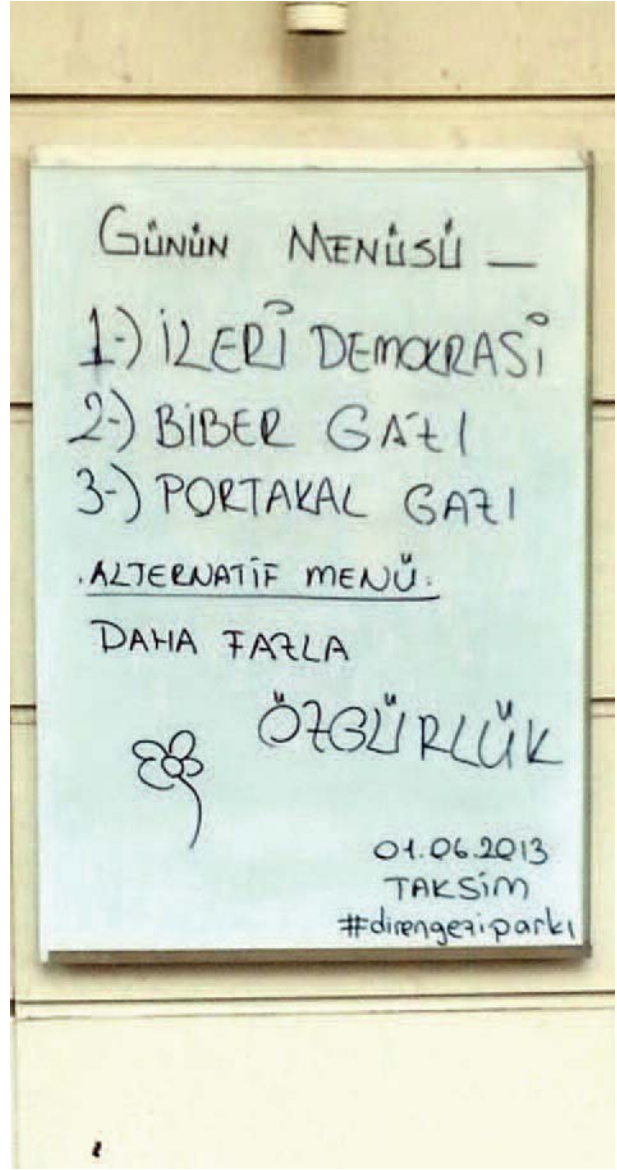 GÜNÜN MENÜSÜ —
1-) İLERİ DEMOKRASİ
2-) BİBER GAZI
3-) PORTAKAL GAZI
.ALTERNATİF MENÜ.
DAHA FAZLA
ÖZGÜRLÜK
01.06.2013
TAKSİM
#direngeziparkı